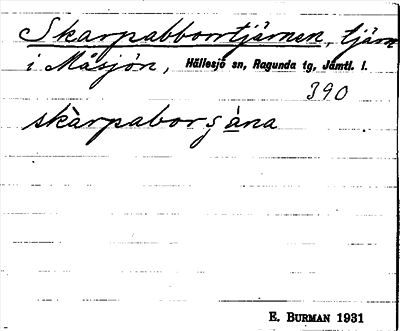 Skarpabborrtjärnen, tjärn
i Måsjön, Hällesjö sn, Ragunda tg, Jämtl. l.
390
skàrpaborʂàna
E. BURMAN 1931